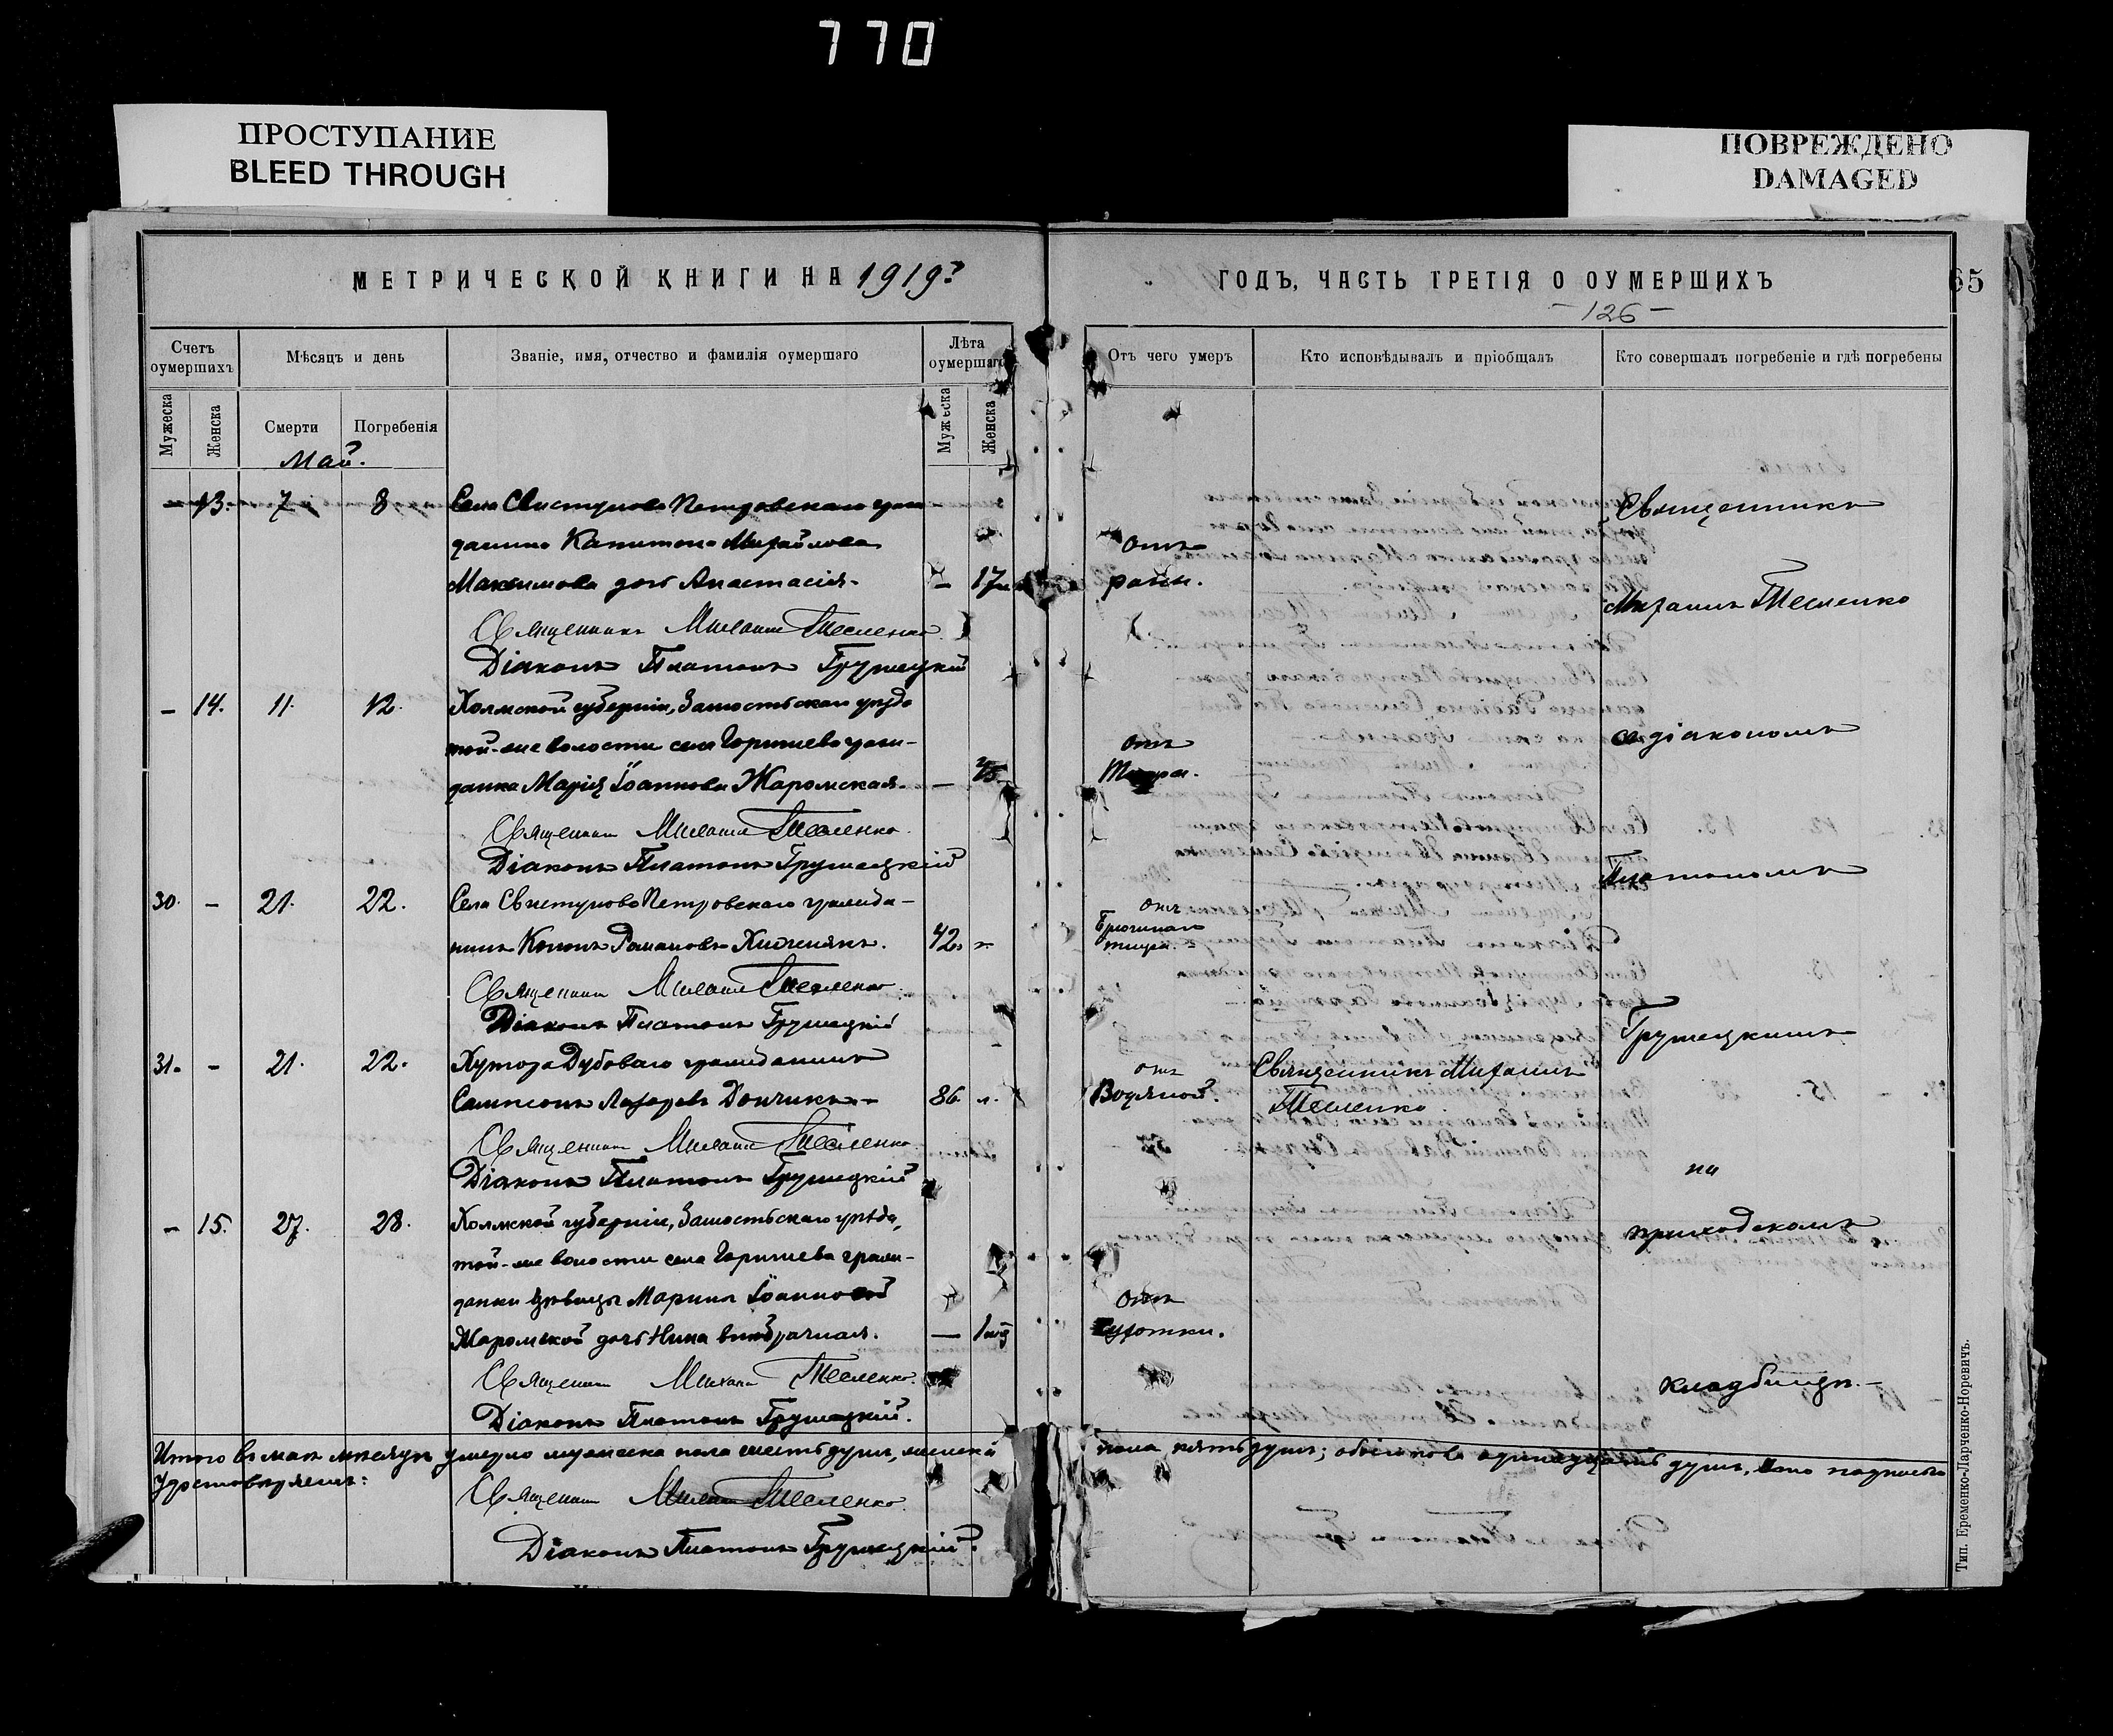 770
ПРОСТУПАНИЕ
BLEED THROUGH
ПОВРЕЖДЕНО
DAMAGED
МЕТРИЧЕСКОЙ КНИГИ НА 1919г.
ГОДЪ, ЧАСТЬ ТРЕТІЯ О ОУМЕРШИХЪ
65
- 126 -
Счетъ оумершихъ
Мѣсяцъ и день
Званіе, имя, отчество и фамилія оумершаго
Лѣта оумершаго
Отъ чего умеръ
Кто исповѣдывалъ и пріобщалъ
Кто совершалъ погребеніе и гдѣ погребены
Мужеска
Женска
Смерти
Погребенія
Мужеска
Женска
Май.
— 13. 7 8 Села Свистунова Петровскаго граж-
Священникъ
данина Капитона Михайлова
отъ
Максимова дочь Анастасія. — 17
Михаилъ Тесленко
Священникъ Михаилъ Тесленко
Діаконъ Платонъ Грушецкій
— 14. 11. 12. Холмской губерніи, Замостьскаго уѣзда
той-же волости села Горышева граж-
отъ
съ діакономъ
данка Марія Іоаннова Жаромская. —
Священникъ Михаилъ Тесленко.
Діаконъ Платонъ Грушецкій
Платономъ
30. — 21. 22. Села Свистунова Петровскаго гражда-
отъ
нинъ Кононъ Романовъ 42.
Брюшнаго
тифа.
Священникъ Михаилъ Тесленко.
Діаконъ Платонъ Грушецкій
Грушецкимъ
31. — 21. 22. Хутора Дубоваго гражданинъ
отъ
Священникъ Михаилъ
Сампсонъ Лазаревъ Дончикъ — 86 л.
Водяной.
Тесленко.
Священникъ Михаилъ Тесленко
Діаконъ Платонъ Грушецкій
на
— 15. 27. 28. Холмской губерніи, Замостьскаго уѣзда,
приходскомъ
той-же волости села Горышева граж-
данки дѣвицы Марины Іоанновой
отъ
Жаромской дочь Нина внѣбрачная. —
сухотки.
Священникъ Михаилъ Тесленко.
кладбищѣ.—
Діаконъ Платонъ Грушецкій.
Итого въ маѣ мѣсяцѣ умерло мужеска пола шесть душъ, женска пола пять душъ; обоего пола одиннадцать душъ, подписью
удостовѣряемъ:
Священникъ Михаилъ Тесленко.
Діаконъ Платонъ Грушецкій.
Тип. Еременко-Ларченко-Норевичъ.